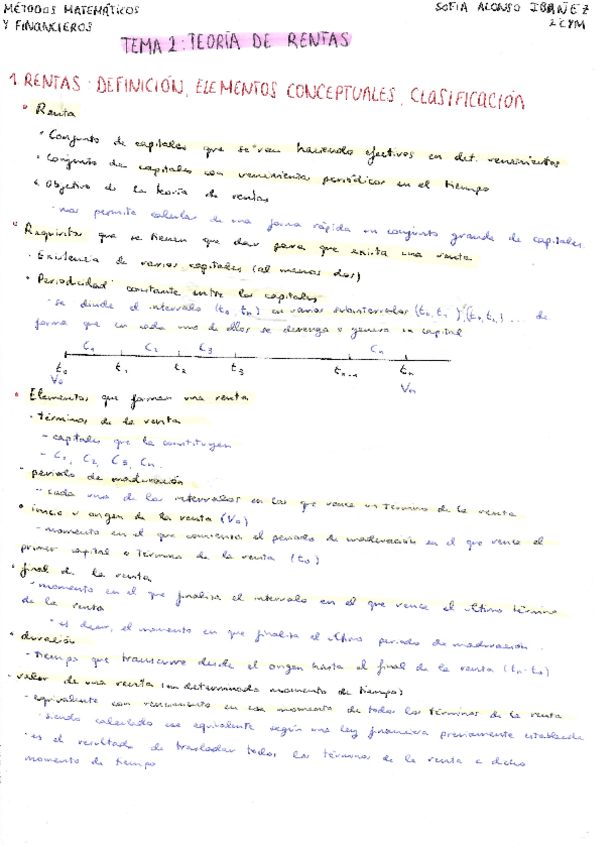 MÉTODOS MATEMÁTICOS
Y FINANCIEROS
SOFÍA ALONSO IBAÑEZ
2ºCYM
TEMA 2: TEORÍA DE RENTAS
1. RENTAS: DEFINICIÓN, ELEMENTOS CONCEPTUALES, CLASIFICACIÓN
• Renta
· Conjunto de capitales que se van haciendo efectivos en det. vencimientos
· Conjunto de capitales con vencimientos periódicos en el tiempo
· Objetivo de la teoría de rentas
- nos permite calcular de una forma rápida un conjunto grande de capitales
• Requisitos que se tienen que dar para que exista una renta
· Existencia de varios capitales (al menos dos)
· Periodicidad constante entre los capitales
- se divide el intervalo (t0, tn) en varios subintervalos (t0,t1) (t0,t1) ... de
forma que en cada uno de ellos se devenga o genera un capital
C1 C2 C3 Cn
t0 t1 t2 t3 tn-1 tn
V0 Vn
• Elementos que forman una renta
· términos de la renta
- capitales que la constituyen
- C1, C2, C3, Cn.
- periodo de maduración
- cada uno de los intervalos en los que vence un término de la renta
• inicio u origen de la renta (V0)
- momento en el que comienza el periodo de maduración en el que vence el
primer capital o término de la renta (t0)
• final de la renta
- momento en el que finaliza el intervalo en el que vence el último término
de la renta
- es decir, el momento en que finaliza el último periodo de maduración.
• duración
- tiempo que transcurre desde el origen hasta el final de la renta (tn-t0)
· valor de una renta (en determinado momento de tiempo)
- equivalente con vencimiento en ese momento de todos los términos de la renta
- siendo calculado ese equivalente según una ley financiera previamente establecida
· es el resultado de trasladar todos los términos de la renta a dicho
momento de tiempo